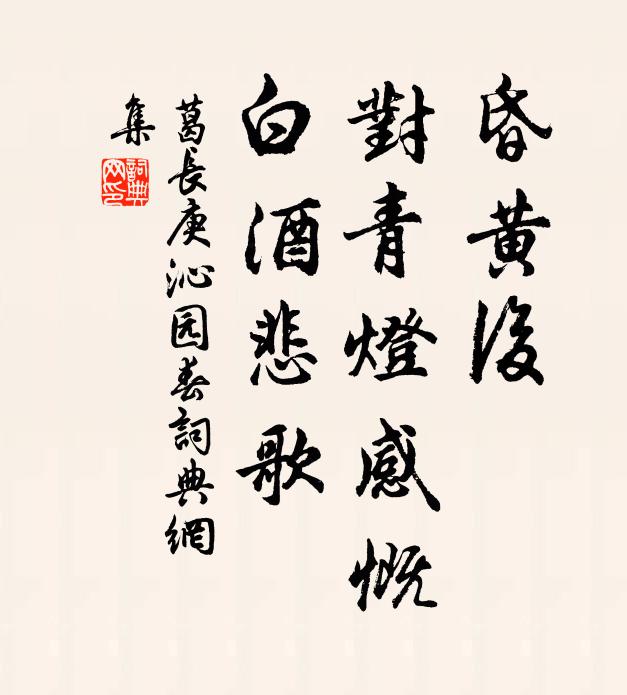 昏黄後
對青燈感慨
白酒悲歌
葛長庚沁园春詞典網
集
詞典網印